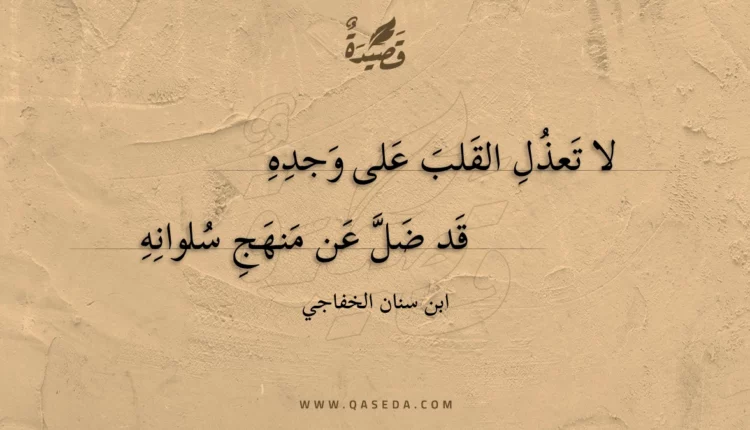 قَصِيدَةٌ
لا تَعذُلِ القَلبَ عَلى وَجدِهِ
قَد ضَلَّ عَن مَنهَجِ سُلوانِهِ
ابن سنان الخفاجي
WWW.QASEDA.COM